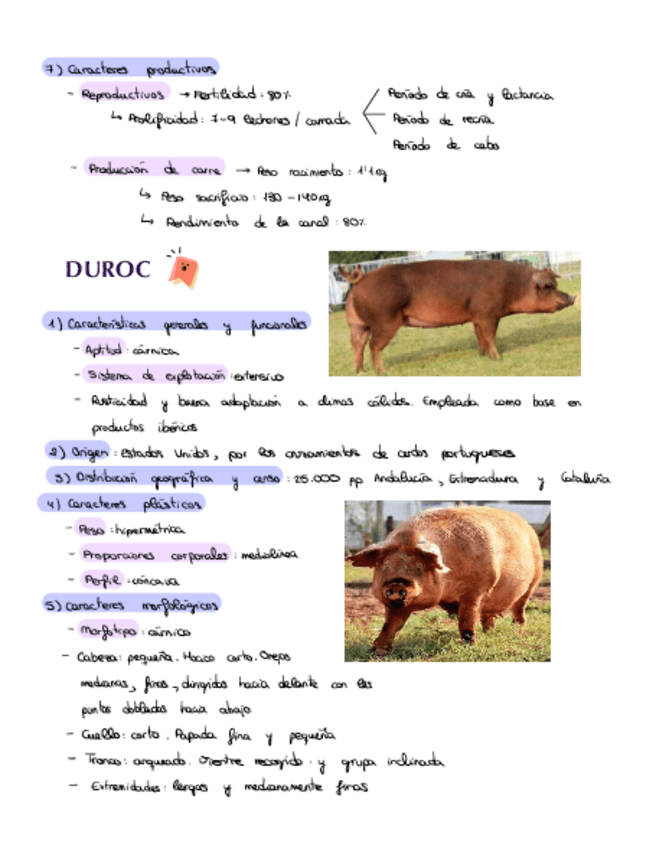 7) Caracteres productivos
- Reproductivos → Fertilidad : 80%
↳ Prolificidad : 7-9 lechones / camada
Período de cría y lactancia
Período de recría
Período de cebo
- Producción de carne → Peso nacimiento : 1'1 kg
↳ Peso sacrificio : 130 - 140 kg
↳ Rendimiento de la canal : 80%
DUROC
1) Características generales y funcionales
- Aptitud : cárnica
- Sistema de explotación : extensivo
- Rusticidad y buena adaptación a climas cálidos. Empleada como base en
productos ibéricos
2) Origen : Estados Unidos, por los cruzamientos de cerdos portugueses
3) Distribución geográfica y censo : 25.000 pp Andalucía, Extremadura y Cataluña
4) Caracteres plásticos
- Peso : hipermétrica
- Proporciones corporales : mediolínea
- Perfil : cóncava
5) Caracteres morfológicos
- Morfotipo : cárnico
- Cabeza : pequeña. Hocico corto. Orejas
medianas, finas, dirigidas hacia delante con las
puntas dobladas hacia abajo
- Cuello : corto. Papada fina y pequeña
- Tronco : arqueado. Vientre recogido y grupa inclinada
- Extremidades : largas y medianamente finas